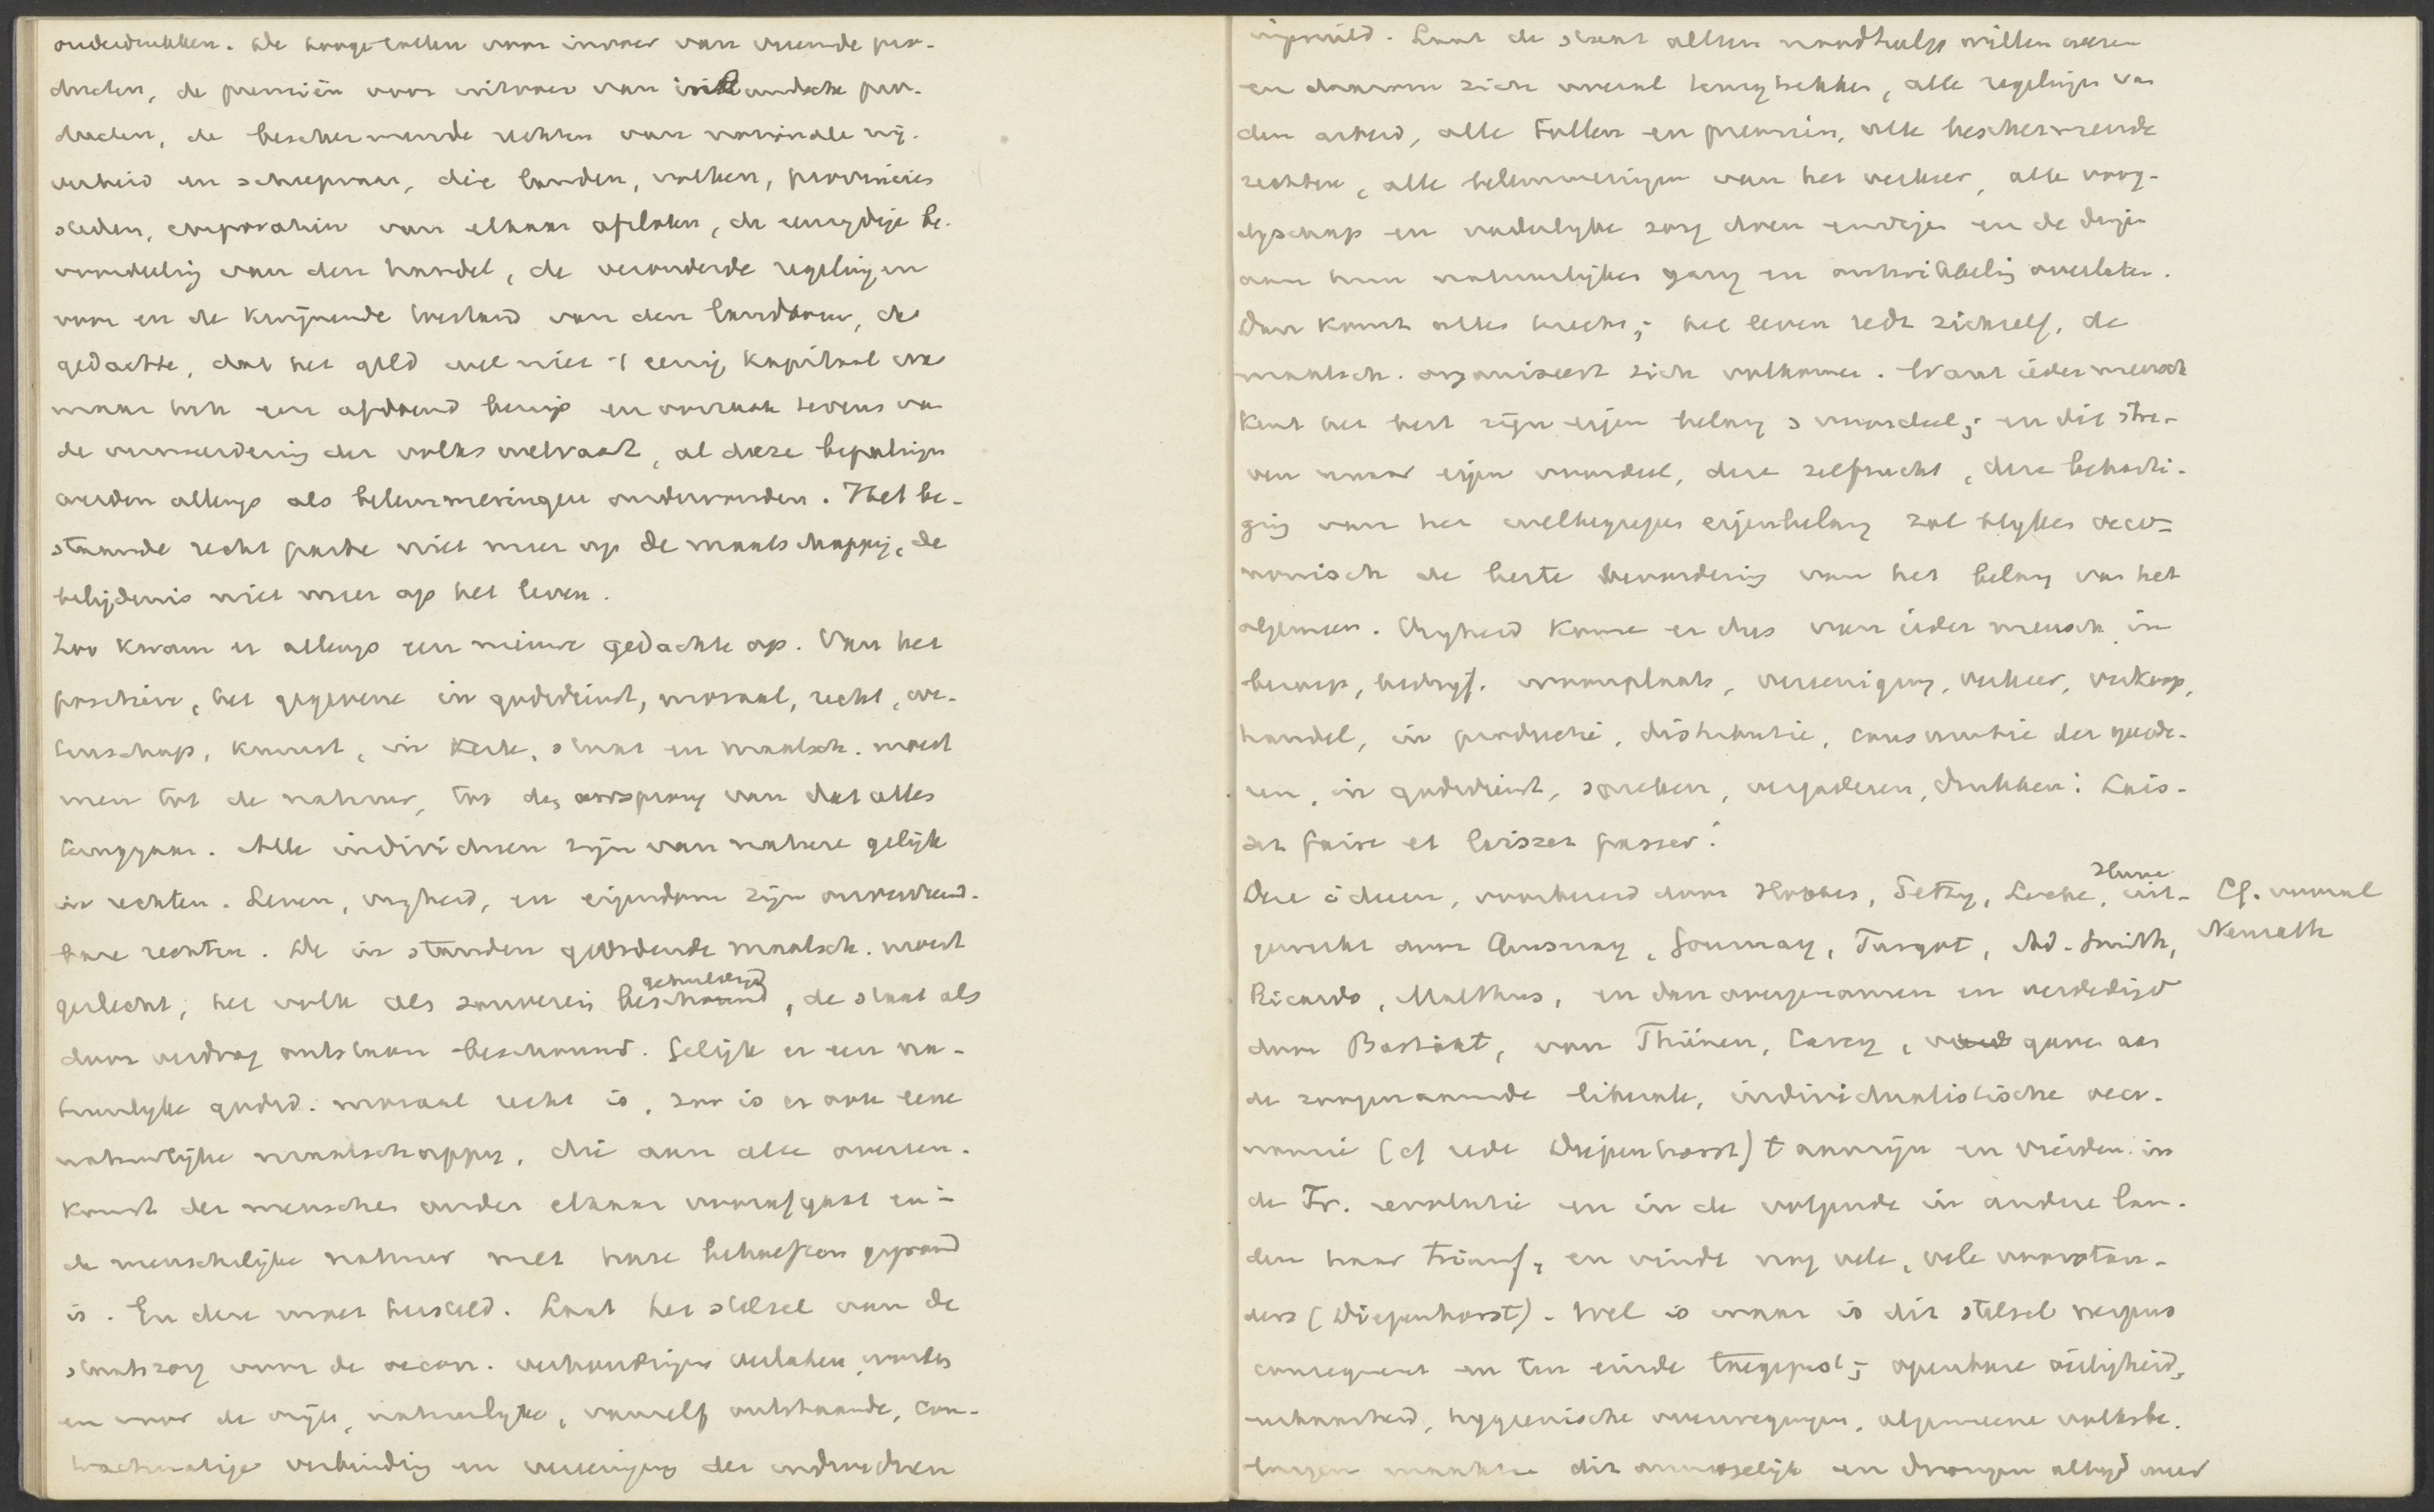 onderdrukken. De hooge tollen voor invoer van vreemde pro-
ducten, de premiën voor uitvoer van inlandsche pro-
ducten, de beschermende rechten van nationale nij-
verheid en scheepvaart, die landen, volken, provincies
steden, corporatiën van elkaar afsloten, de eenzydige be-
voordeeling van den handel, de verouderde regelingen
voor en de kwijnende toestand van den landbouw, de
gedachte, dat het geld wel niet 't eenig kapitaal was
maar toch een afdoend bewijs en oorzaak tevens van
de vermeerdering der volkswelvaart, al deze bepalingen
werden allengs als belemmeringen ondervonden. Het be-
staande recht paste niet meer op de maatschappij, de
belijdenis niet meer op het leven.
Zoo kwam er allengs een nieuwe gedachte op. Van het
positieve, het gegevene in godsdienst, moraal, recht, we-
tenschap, kunst, in kerk, staat en maatsch. moest
men tot de natuur, tot den oorsprong van dat alles
teruggaan. Alle individuen zijn van nature gelijk
in rechten. Leven, vryheid, en eigendom zijn onvervreemd-
bare rechten. De in standen geordende maatsch. moest
geslecht, het volk als souverein gehuldigd beschouwd, de staat als
door verdrag ontstaan beschouwd. Gelijk er een na-
tuurlyke godsd. moraal recht is, zoo is er ook eene
natuurlijke maatschappy, die aan alle overeen-
komst der menschen onder elkaar voorafgaat en in
de menschelijke natuur met hare behoeften gegrond
is. En deze moet hersteld. Laat het stelsel van de
staatszorg voor de oecon. verhoudingen verlaten worden
en voor de vrije, natuurlyke, vanzelf ontstaande, con-
tractmatige verbinding en vereeniging der individuen
ingeruild. Laat de staat alleen noodhulp willen wezen
en daarom zich overal terugtrekken, alle regelingen van
den arbeid, alle tollen en premiën, alle beschermende
rechten, alle belemmeringen van het verkeer, alle voog-
dyschap en vaderlyke zorg doen eindigen en de dingen
aan hun natuurlijken gang en ontwikkeling overlaten.
Dan komt alles terecht; het leven redt zichzelf, de
maatsch. organiseert zich volkomen. Want ieder mensch
kent het best zijn eigen belang & voordeel; en dit stre-
ven naar eigen voordeel, deze zelfzucht, deze beharti-
ging van het welbegrepen eigenbelang zal blyken oeco-
nomisch de beste bevordering van het belang van het
algemeen. Vryheid kome er dus voor ieder mensch in
beroep, bedryf, woonplaats, vereeniging, verkeer, verkoop,
handel, in productie, distributie, consumtie der goede-
ren, in godsdienst, spreken, vergaderen, drukken: Lais-
sez faire et laissez passer!
Deze ideeen, voorbereid door Hobbes, Petty, Locke, Hume uit-
gewerkt door Quesnay, Gournay, Turgot, Ad. Smith,
Ricardo, Malthus, en dan overgenomen en verdedigd
door Bastiat, von Thünen, Carey, gaven aan
de zoogenaamde liberale, individualistische oeco-
nomie (cf rede Diepenhorst) 't aanzijn en vierden in
de Fr. revolutie en in de volgende in andere lan-
den haar triumf, en vinde nog vele, vele voorstan-
ders (Diepenhorst). Wel is waar is dit stelsel nergens
consequent en ten einde toegepast; openbare veiligheid,
eerbaarheid, hygienische overwegingen, algemeene volksbe-
langen maakten dit onmogelijk en drongen altyd weer
Cf. vooral